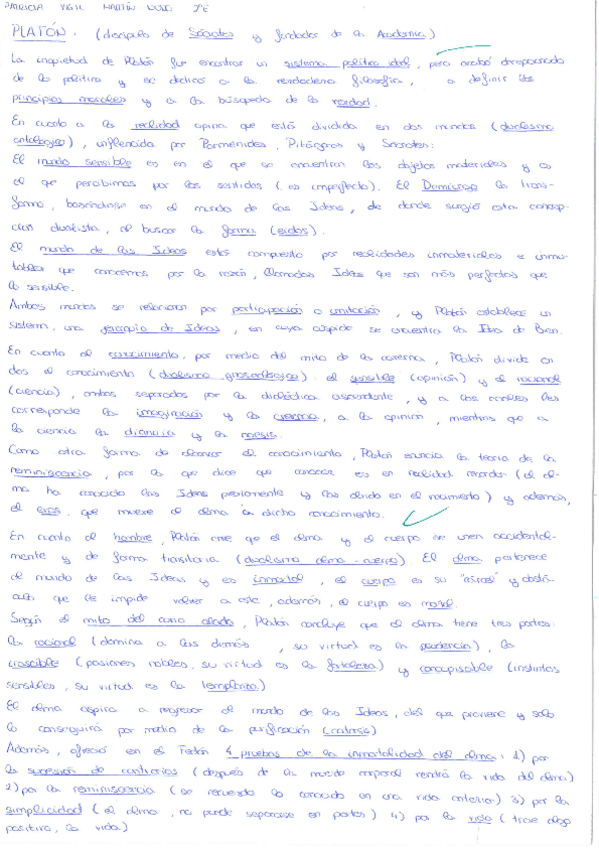 PATRICIA VIGIL MARTÍN
PLATÓN: (discípulo de Sócrates y fundador de la Academia)
La inquietud de Platón fue encontrar un sistema político ideal, pero acabó decepcionado
de la política y se dedicó a la verdadera filosofía, a definir los
principios morales y a la búsqueda de la verdad.
En cuanto a la realidad opina que está dividida en dos mundos (dualismo
ontológico), influenciado por Parménides, Pitágoras y Sócrates:
El mundo sensible es en el que se encuentran los objetos materiales y es
el que percibimos por los sentidos (es imperfecto). El Demiurgo lo trans-
forma, basándose en el mundo de las Ideas, de donde surgió esta concep-
ción dualista, al buscar la forma (eidos).
El mundo de las Ideas está compuesto por realidades inmateriales e inmu-
tables que conocemos por la razón, llamadas Ideas que son más perfectas que
lo sensible.
Ambos mundos se relacionan por participación o imitación, y Platón establece un
sistema, una jerarquía de Ideas, en cuya cúspide se encuentra la Idea de Bien.
En cuanto al conocimiento, por medio del mito de la caverna, Platón divide en
dos el conocimiento (dualismo gnoseológico): el sensible (opinión) y el racional
(ciencia), ambos separados por la dialéctica ascendente, y a los cuales les
corresponde la imaginación y la creencia, a la opinión, mientras que a
la ciencia la dianoia y la noesis.
Como otra forma de alcanzar el conocimiento, Platón enuncia la teoría de la
reminiscencia, por la que dice que conocer es en realidad recordar (el al-
ma ha conocido las Ideas previamente y las olvidó en el nacimiento) y además,
el eros, que mueve el alma a dicho conocimiento.
En cuanto al hombre, Platón cree que el alma y el cuerpo se unen accidental-
mente y de forma transitoria (dualismo alma-cuerpo). El alma pertenece
al mundo de las Ideas y es inmortal, el cuerpo es su "cárcel" y obstá-
culo que le impide volver a este, además, el cuerpo es mortal.
Según el mito del carro alado, Platón concluye que el alma tiene tres partes:
la racional (domina a las demás, su virtud es la prudencia), la
irascible (pasiones nobles, su virtud es la fortaleza) y concupiscible (instintos
sensibles, su virtud es la templanza)
El alma aspira a regresar al mundo de las Ideas, del que proviene y solo
lo conseguirá por medio de la purificación (catarsis)
Además, ofreció en el Fedón 4 pruebas de la inmortalidad del alma: 1) por
la sucesión de contrarios (después de la muerte corporal vendrá la vida del alma)
2) por la reminiscencia (se recuerda lo conocido en una vida anterior) 3) por la
simplicidad (el alma, no puede separarse en partes) 4) por la vida (trae algo
positivo, la vida)